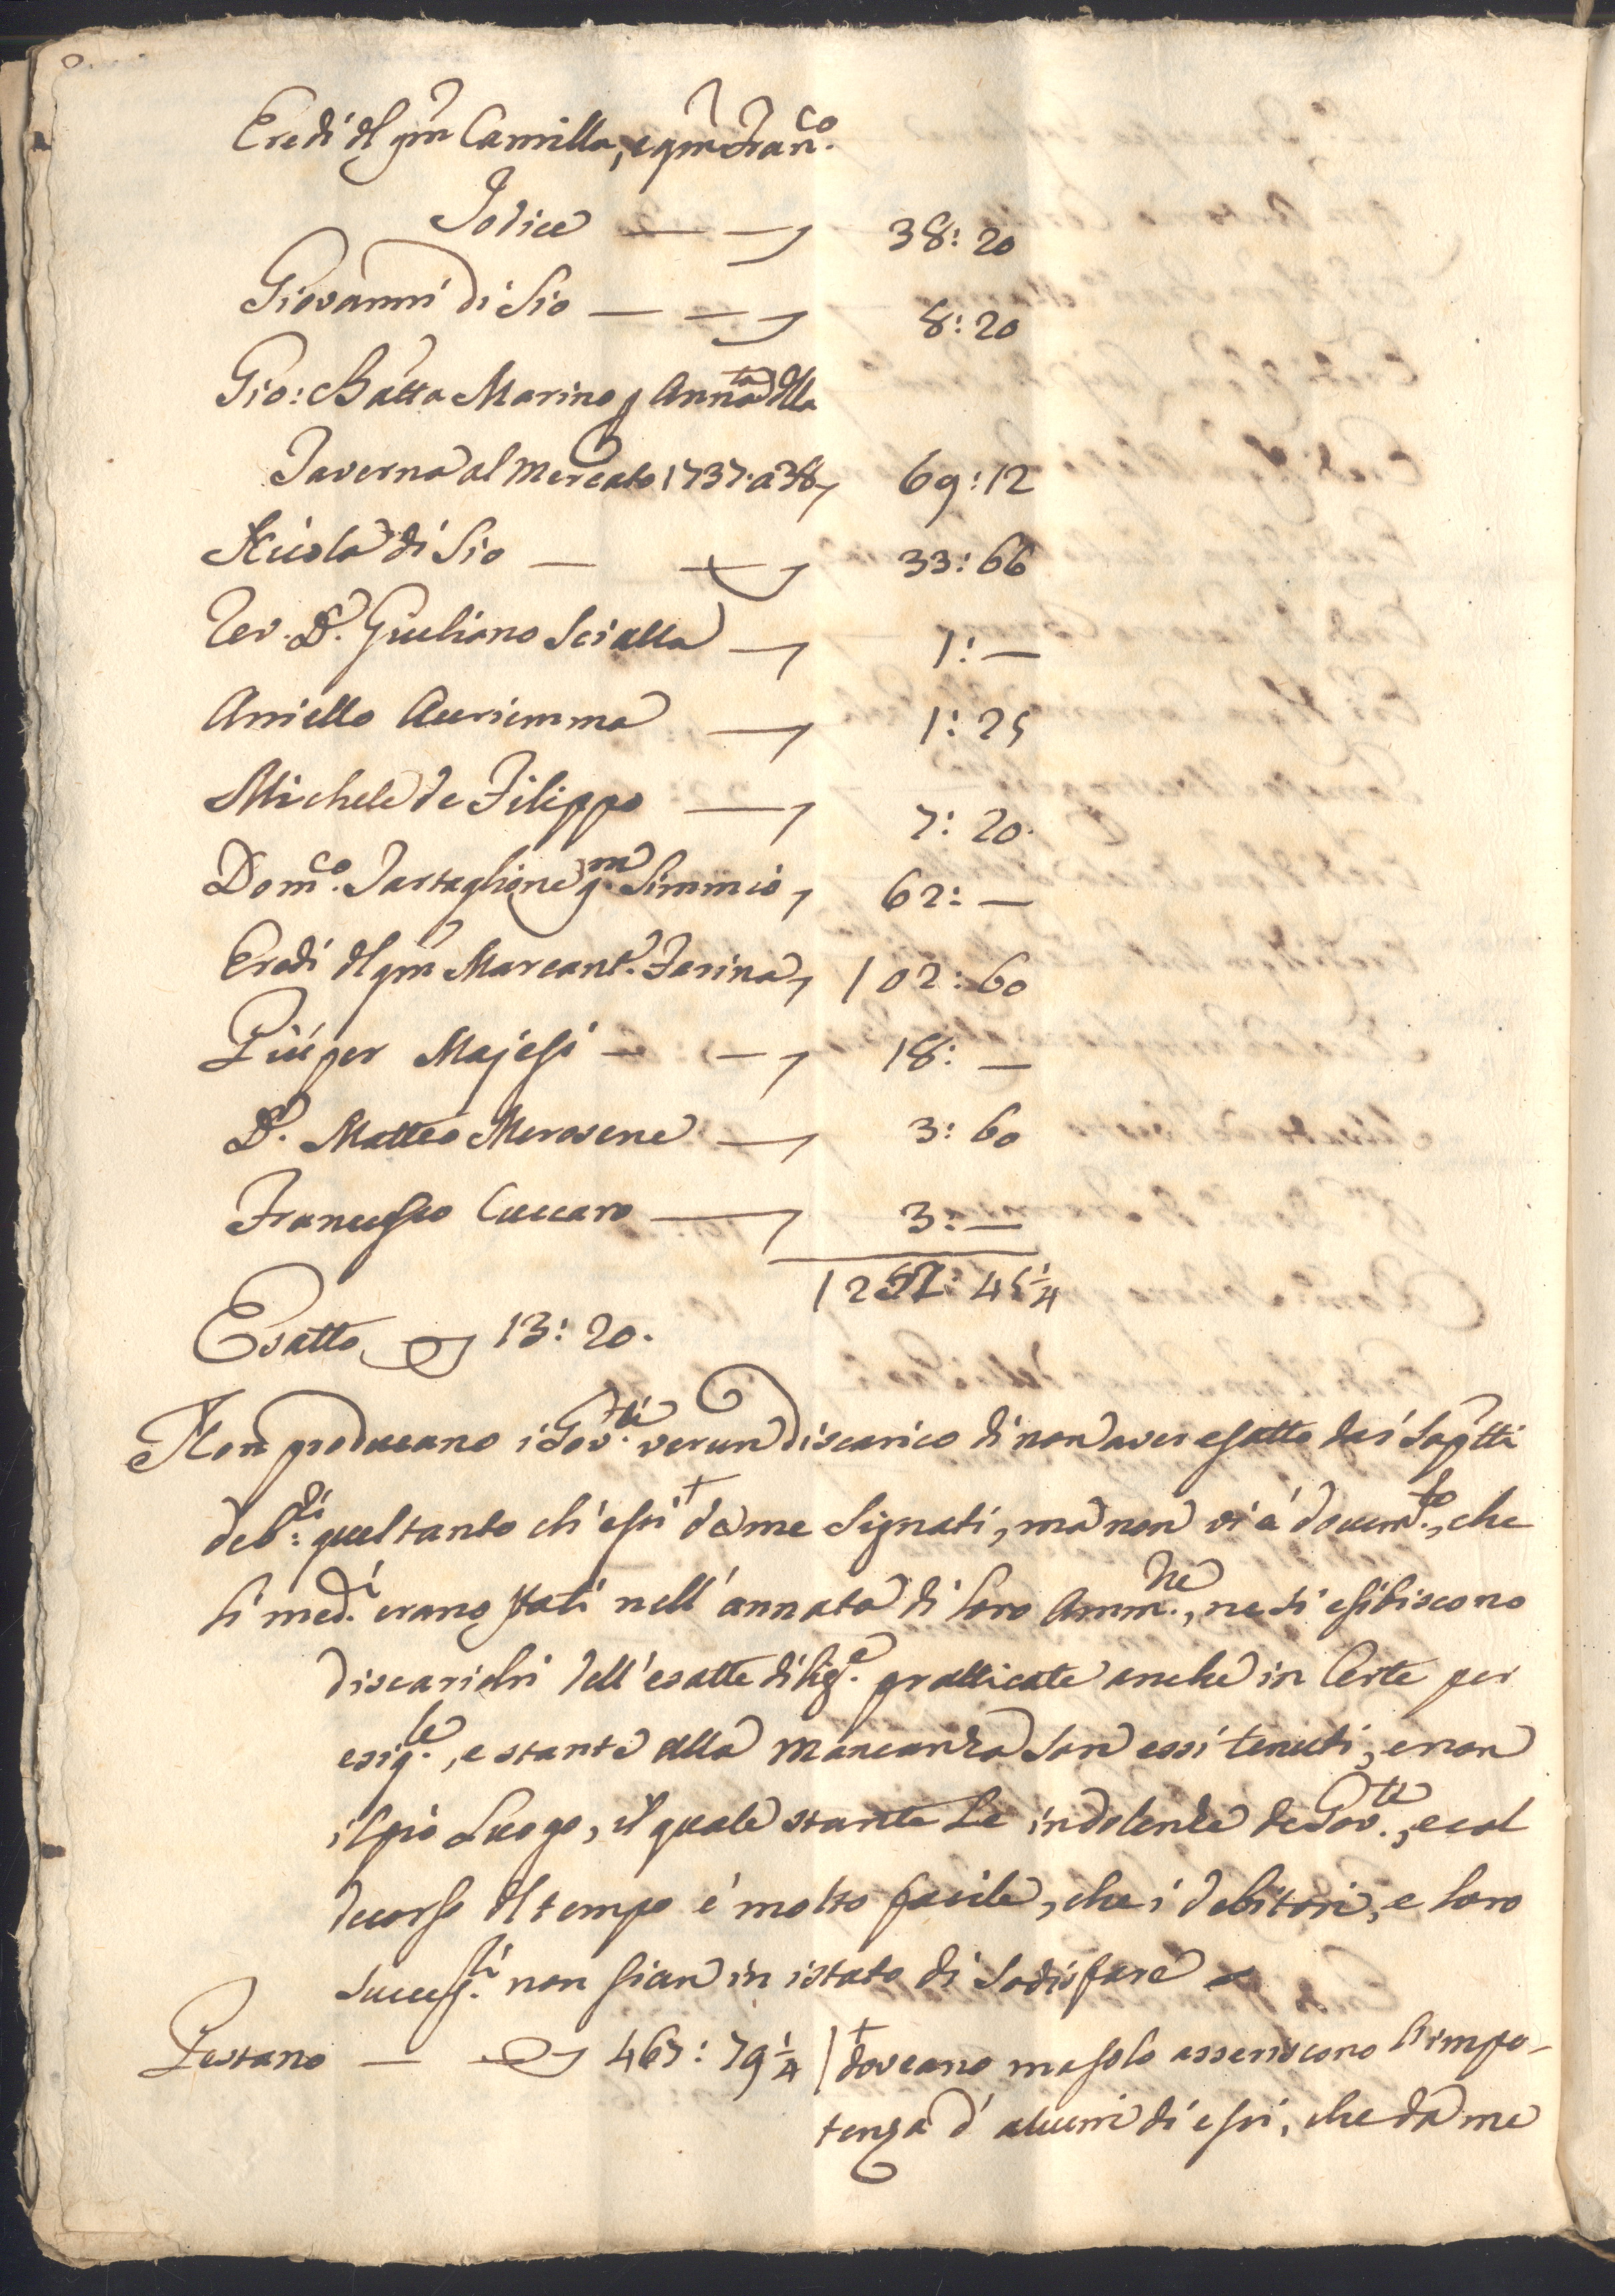 Eredi del qm Camilla, e qm Fran.co
Jodice — — 38: 20
Giovanni di Sio — — 8: 20
Gio: Batta Marino p Ann.ta della
Taverna al Mercato 1737. a 38 69: 12
Nicola di Sio — + 33: 66
Rev. D. Giuliano Scialla — 1: —
Aniello Auriemma — 1: 25
Michele de Filippo — 7: 20.
Dom.co Tartaglione q.m Simmio 62: —
Eredi del qm Marcant.o Farina 102: 60
Più per Majesi — — 18: —
D. Matteo Merovene — 3: 60
Francesco Cuccaro — 3: —
1252: 45 1/4
Esatto 13: 20.
Non producano i Gov.ti verun discarico di non aver esatto dai Sop.tti
deb.ri quel tanto ch'essi + da me Signati, ma non vi è docum.to, che
li med.i erano stati nell'annata di loro Amm.ne, ne si esibiscono
discarichi dell'esatte dilig.e pratticate anche in Corte per
esig.le, e stante alla mancanza son essi tenuti, e non
il pio Luogo, il quale stante le indolenze de Gov.ti, e col
decorso del tempo è molto facile, che i debitori, e loro
success.ri non sian in istato di sodisfare
Restano — 467: 79 1/4 | + doveano ma solo asseriscono l'impo-
tenza d'alcuni di essi, che da me